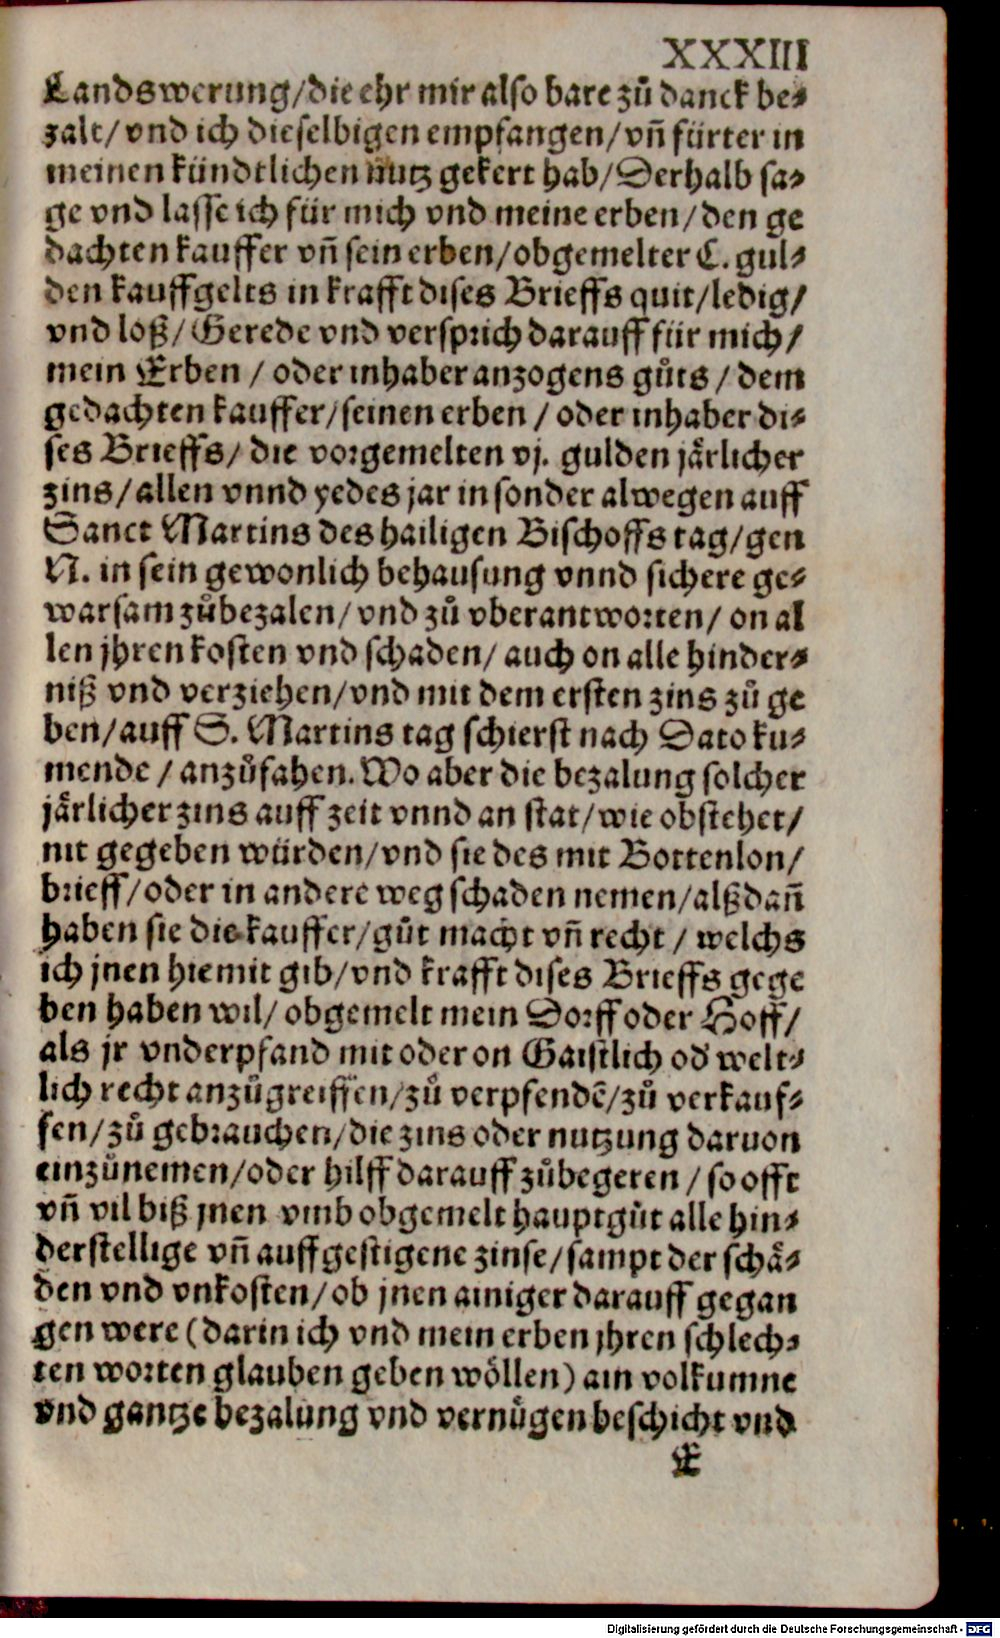 XXXIII
Landswerung/die ehr mir also bare zů danck be⸗
zalt/vnd ich dieselbigen empfangen/vñ fürter in
meinen kündtlichen nutz gekert hab/Derhalb sa⸗
ge vnd lasse ich für mich vnd meine erben/den ge
dachten kauffer vñ sein erben/obgemelter C. gul⸗
den kauffgelts in krafft dises Brieffs quit/ledig/
vnd loß/Gerede vnd versprich darauff für mich/
mein Erben / oder inhaber anzogens gůts / dem
gedachten kauffer/seinen erben / oder inhaber di⸗
ses Brieffs/ die vorgemelten vj. gulden jårlicher
zins/allen vnnd yedes jar in sonder alwegen auff
Sanct Martins des hailigen Bischoffs tag/gen
N. in sein gewonlich behausung vnnd sichere ge⸗
warsam zůbezalen/vnd zů vberantworten/ on al
len jhren kosten vnd schaden/ auch on alle hinder⸗
niß vnd verziehen/vnd mit dem ersten zins zů ge
ben/auff S. Martins tag schierst nach Dato ku⸗
mende / anzůfahen. Wo aber die bezalung solcher
jårlicher zins auff zeit vnnd an stat/wie obstehet/
nit gegeben würden/vnd sie des mit Bottenlon/
brieff/oder in andere weg schaden nemen/alßdañ
haben sie die kauffer/gůt macht vñ recht / welchs
ich jnen hiemit gib/vnd krafft dises Brieffs gege
ben haben wil/ obgemelt mein Dorff oder Hoff/
als jr vnderpfand mit oder on Gaistlich od' welt⸗
lich recht anzůgreiffen/zů verpfendē/zů verkauf⸗
fen/zů gebrauchen/die zins oder nutzung daruon
einzůnemen/oder hilff darauff zůbegeren / so offt
vñ vil biß jnen vmb obgemelt hauptgůt alle hin⸗
derstellige vñ auffgestigene zinse/sampt der schå⸗
den vnd vnkosten/ob jnen ainiger darauff gegan
gen were (darin ich vnd mein erben jhren schlech⸗
ten worten glauben geben wöllen) ain volkumne
vnd gantze bezalung vnd vernůgen beschicht vnd
E
Digitalisierung gefördert durch die Deutsche Forschungsgemeinschaft - DFG